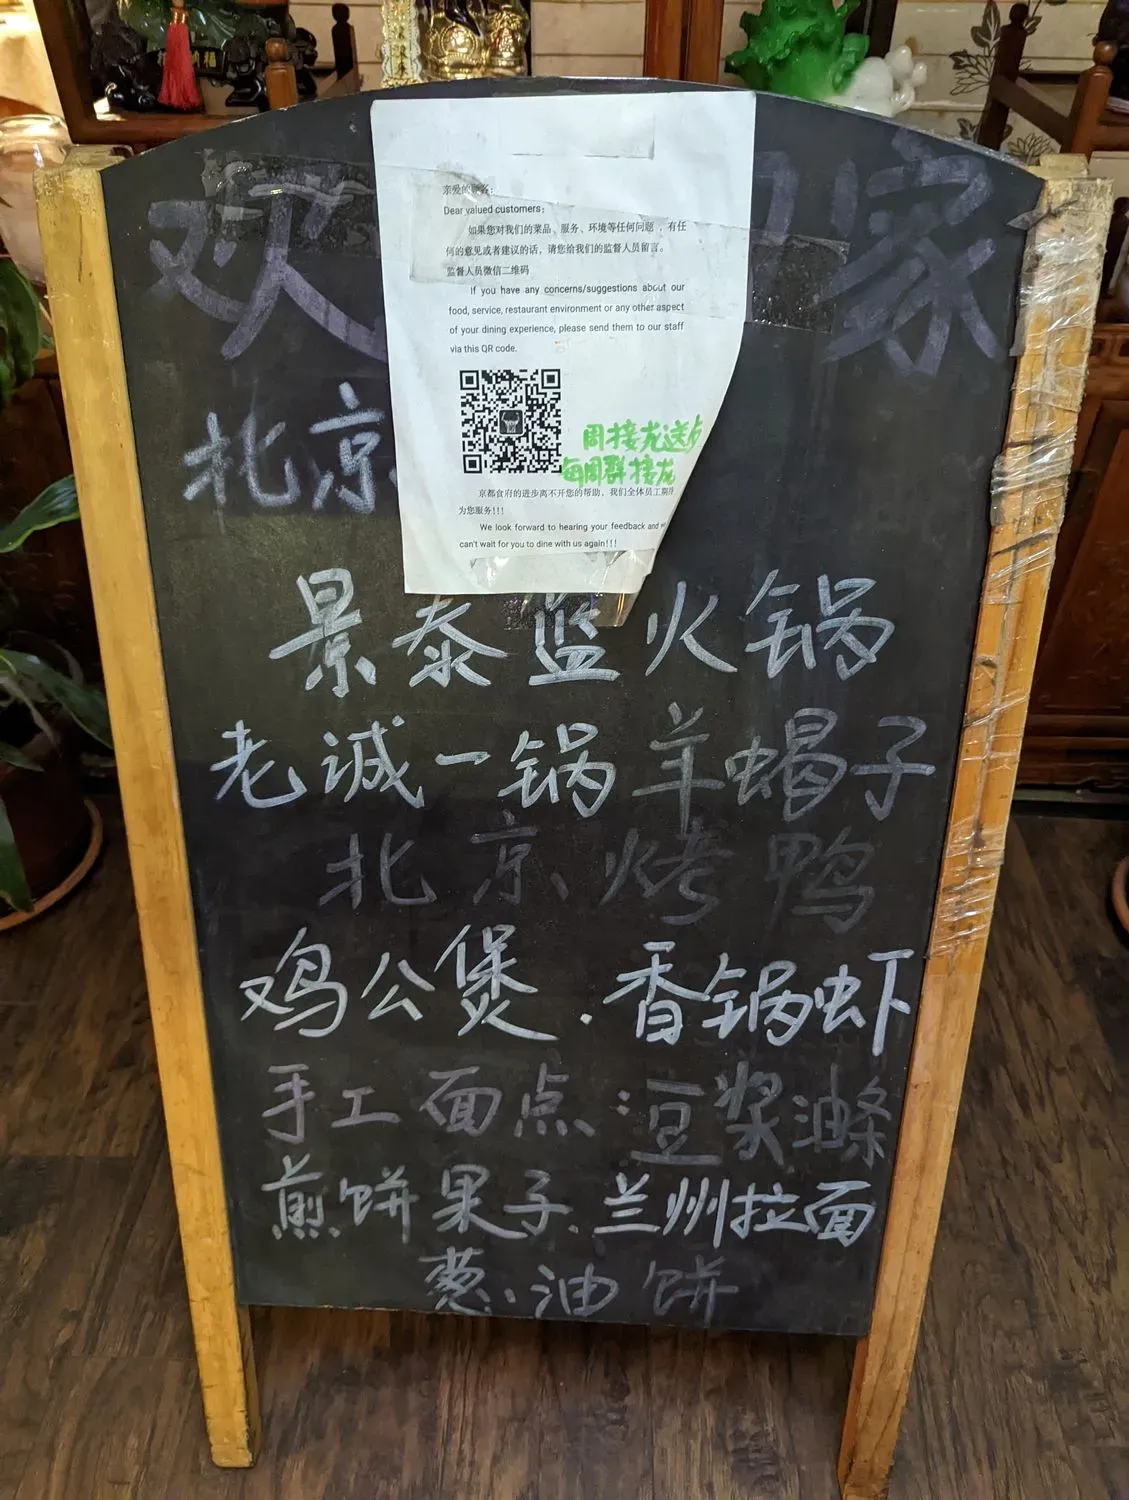 欢 家
北京
亲爱的顾客：
Dear valued customers:
如果您对我们的菜品、服务、环境等任何问题，有任
何的意见或者建议的话，请您给我们的监督人员留言。
监督人员微信二维码
If you have any concerns/suggestions about our
food, service, restaurant environment or any other aspect
of your dining experience, please send them to our staff
via this QR code.
周接龙送点
每周群接龙
京都食府的进步离不开您的帮助，我们全体员工期待
为您服务!!!
We look forward to hearing your feedback and
can't wait for you to dine with us again!!!
景泰蓝火锅
老诚一锅羊蝎子
北京烤鸭
鸡公煲.香锅虾
手工面点 豆浆油条
煎饼果子 兰州拉面
葱油饼